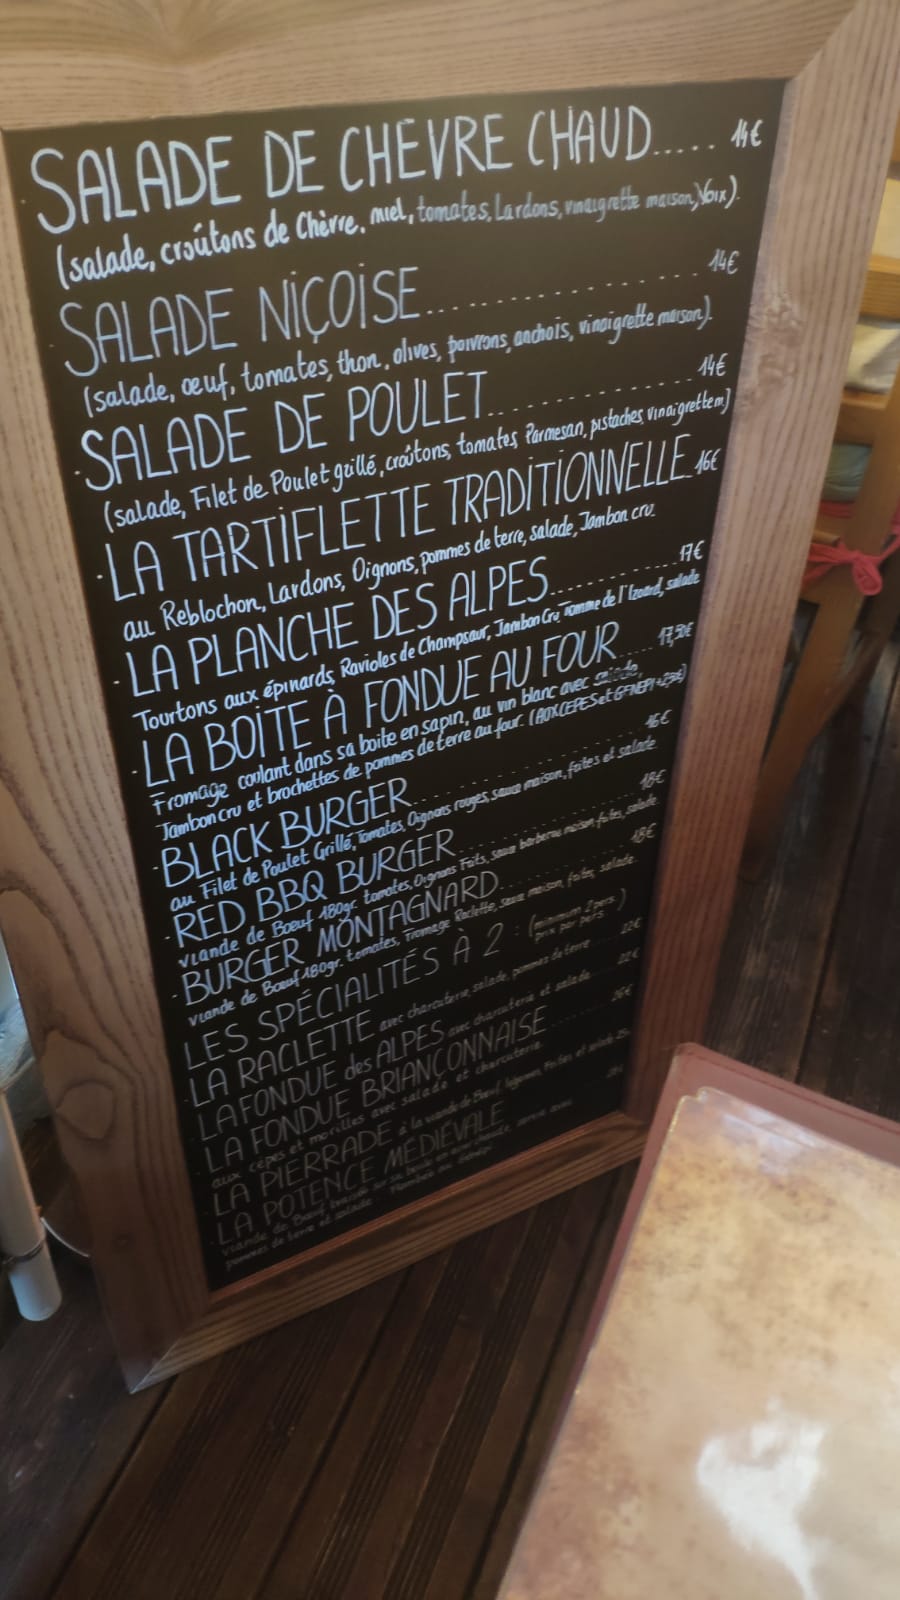 SALADE DE CHEVRE CHAUD..... 14€
(salade, croûtons de Chèvre, miel, tomates, Lardons, vinaigrette maison, Noix).
SALADE NIÇOISE................ 14€
(salade, œuf, tomates, thon, olives, poivrons, anchois, vinaigrette maison).
SALADE DE POULET............... 14€
(salade, Filet de Poulet grillé, croûtons, tomates, Parmesan, pistaches, vinaigrette m)
LA TARTIFLETTE TRADITIONNELLE.. 16€
au Reblochon, Lardons, Oignons, pommes de terre, salade, Jambon cru.
LA PLANCHE DES ALPES............ 17€
Tourtons aux épinards, Ravioles de Champsaur, Jambon Cru, Tomme de l'Izoard, salade
LA BOITE À FONDUE AU FOUR.... 17,50€
Fromage coulant dans sa boite en sapin, au vin blanc avec salade,
Jambon cru et brochettes de pommes de terre au four. (AUX CEPES et GENEPI +2,50€)
BLACK BURGER.................... 16€
au Filet de Poulet Grillé, Tomates, Oignons rouges, sauce maison, frites et salade.
RED BBQ BURGER.................. 18€
viande de Bœuf 180gr. tomates, Oignons Frits, sauce barbecue maison, frites, salade.
BURGER MONTAGNARD............... 18€
viande de Bœuf 180gr. tomates, Fromage Raclette, sauce maison, frites, salade.
LES SPÉCIALITÉS À 2 : (minimum 2 pers. prix par pers.)
LA RACLETTE avec charcuterie, salade, pommes de terre ..... 22€
LA FONDUE des ALPES avec charcuterie et salade..... 22€
LA FONDUE BRIANÇONNAISE......... 26€
aux cèpes et morilles avec salade et charcuterie.
LA PIERRADE à la viande de Bœuf, légumes, frites et salade
LA POTENCE MÉDIÉVALE
viande de Bœuf
pommes de terre et salade.